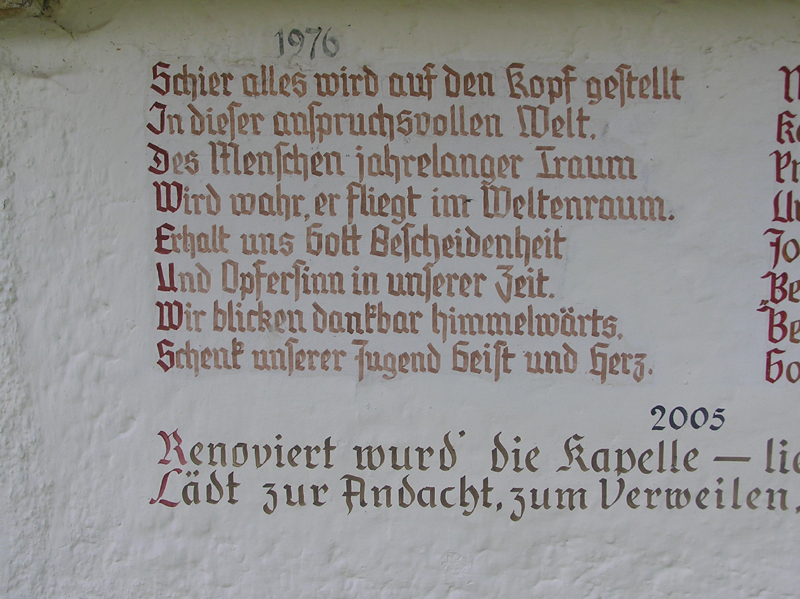 1976
Schier alles wird auf den Kopf gestellt
In dieser anspruchsvollen Welt.
Des Menschen jahrelanger Traum
Wird wahr, er fliegt im Weltenraum.
Erhalt uns Gott Bescheidenheit
Und Opfersinn in unserer Zeit.
Wir blicken dankbar himmelwärts.
Schenk unserer Jugend Geist und Herz.
2005
Renoviert wurd' die Kapelle –
Lädt zur Andacht, zum Verweilen,